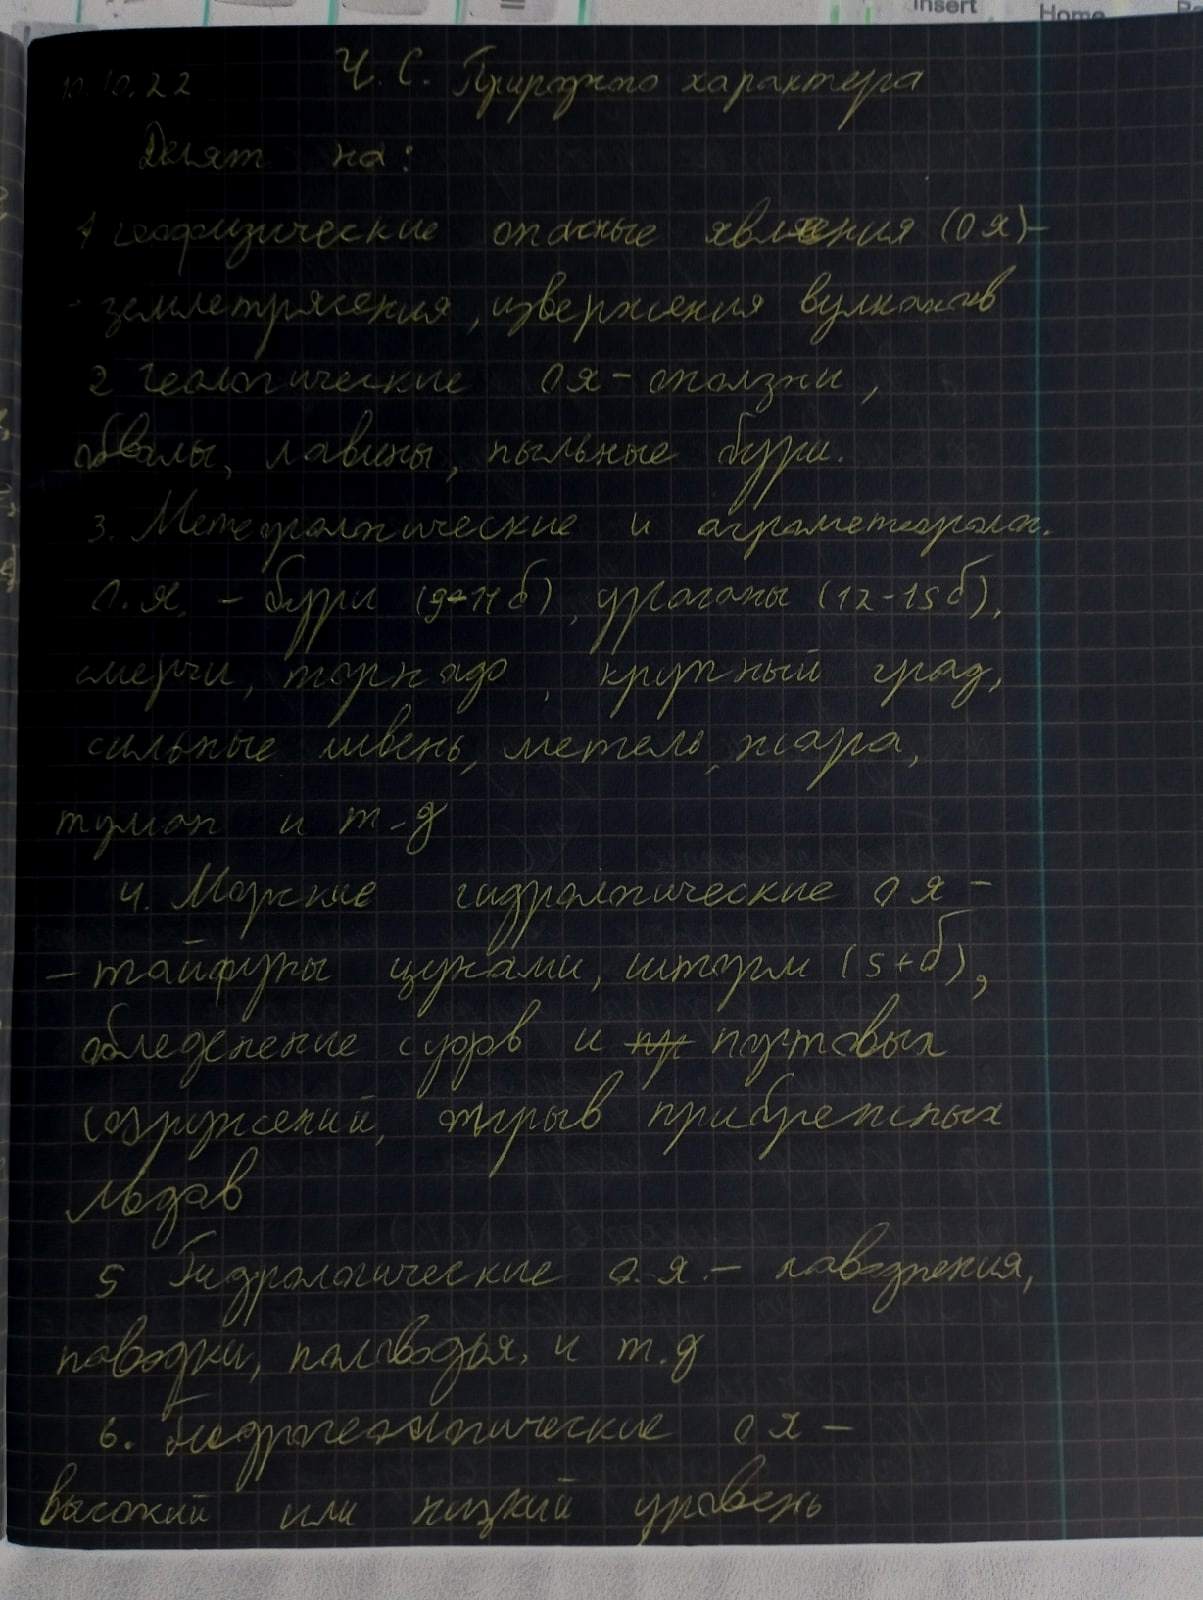 Insert
Home
10.10.22 Ч. С. Природного характера
Делят на:
1 геофизические опасные явления (ОЯ)-
- землетрясения, извержения вулканов
2 Геологические ОЯ - оползни,
обвалы, лавины, пыльные бури.
3. Метеорологические и агрометеоролог.
О.Я. - бури (9-11 б), ураганы (12-15 б),
смерчи, торнадо, крупный град,
сильные ливень, метель, жара,
туман и т-д
4. Морские гидрологические ОЯ -
- тайфуны цунами, шторм (5+б),
обледенение судов и портовых
сооружений, отрыв прибрежных
льдов
5 Гидрологические о.я. - наводнения,
паводки, половодья, и т.д
6. Гидрогеологические ОЯ -
высокий или низкий уровень